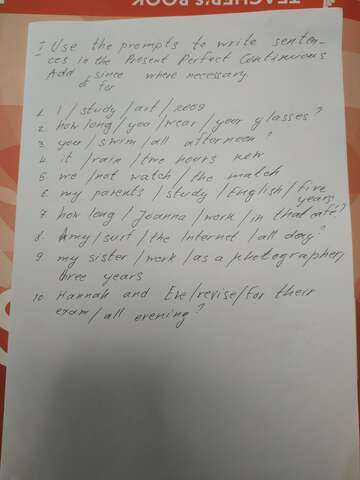 TEACHER'S BOOK
I Use the prompts to write senten-
ces in the Present Perfect Continuous
Add since where necessary
& for
1. I / study / art / 2009
2. how long / you / wear / your glasses?
3. you / swim / all afternoon?
4. it / rain / two hours now
5. we / not watch / the match
6. my parents / study / English / five
years
7. how long / Joanna / work / in that café?
8. Amy / surf / the Internet / all day?
9. my sister / work / as a photographer/
three years
10. Hannah and Eve / revise / for their
exam / all evening?